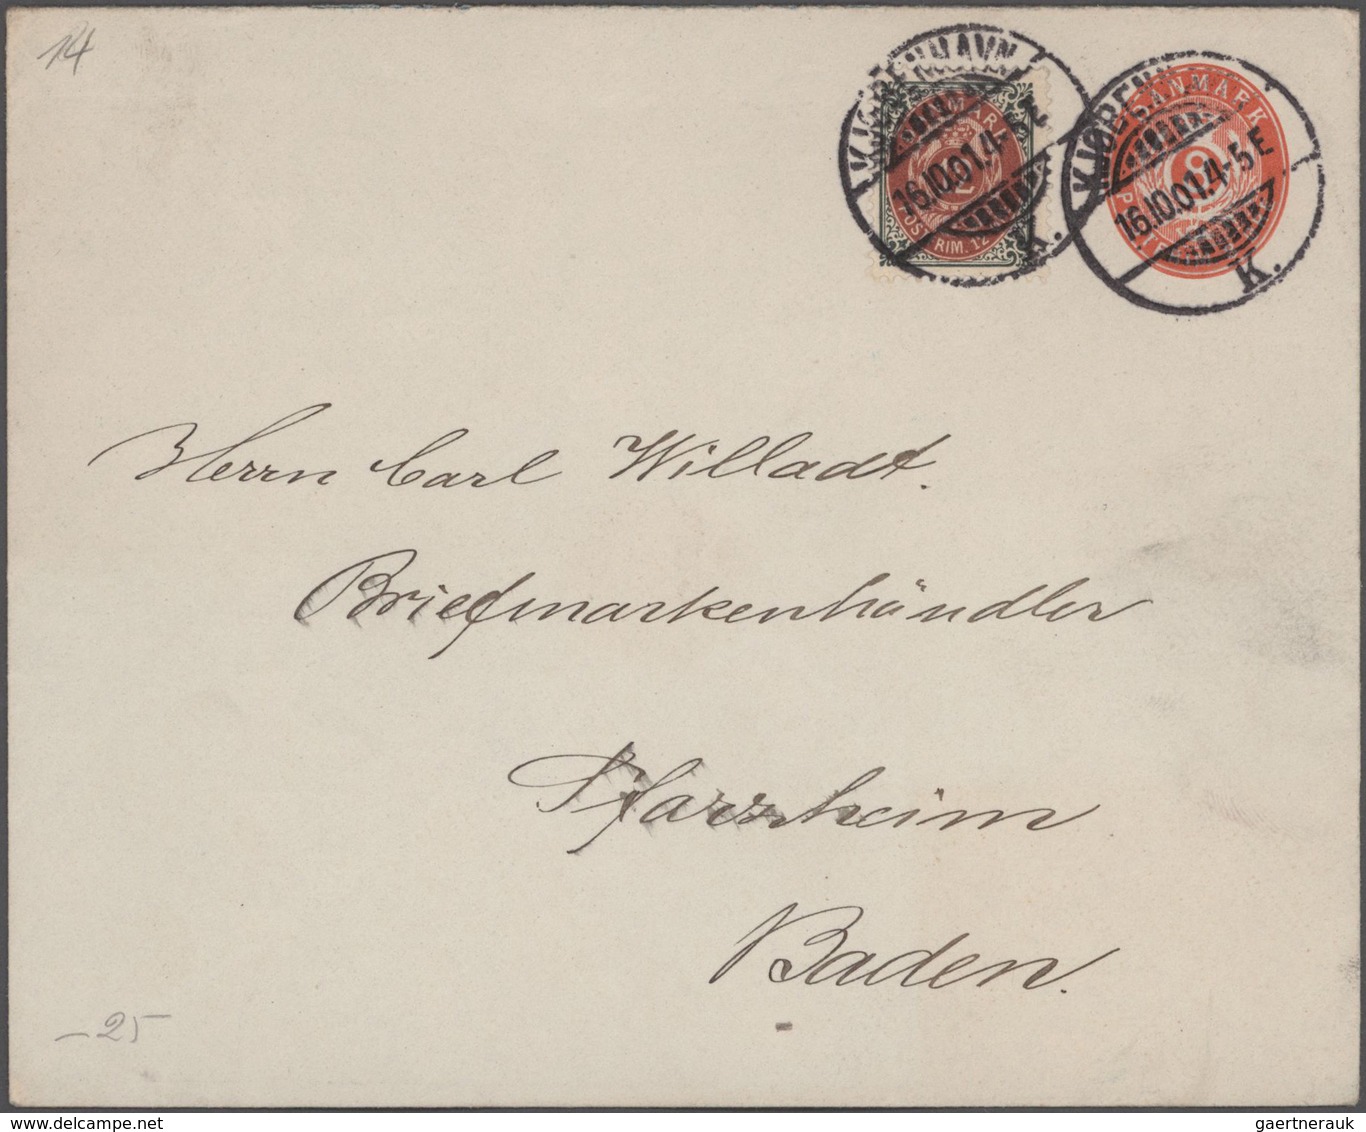 14
KJØBENHAVN
16.10.01.4-5E
K.
DANMARK
POSTFRIM. 12
KJØBENH
16.10.01.4-5E
K.
DANMARK
8
Herrn Carl Willadt.
Briefmarkenhändler
Pforzheim
Baden.
-25
gaertnerauk